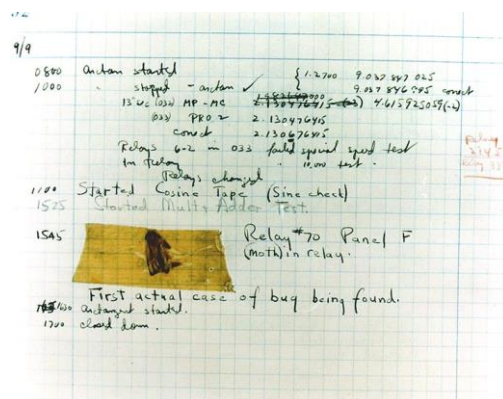 9/9
0800 antan started
1000 " stopped - antan ✓ { 1.2700 9.037 847 025
9.037 846 795 correct
13"uc (032) MP - MC 2.130476415 (-3) 4.615925059(-2)
(033) PRO 2 2.130476415
correct 2.130676415
Relays 6-2 in 033 failed special speed test
in relay " 10.000 test.
Relays changed
1100 Started Cosine Tape (Sine check)
1525 Started Mult + Adder Test.
1545 Relay #70 Panel F
(moth) in relay.
First actual case of bug being found.
1630 antangent started.
1700 closed down.